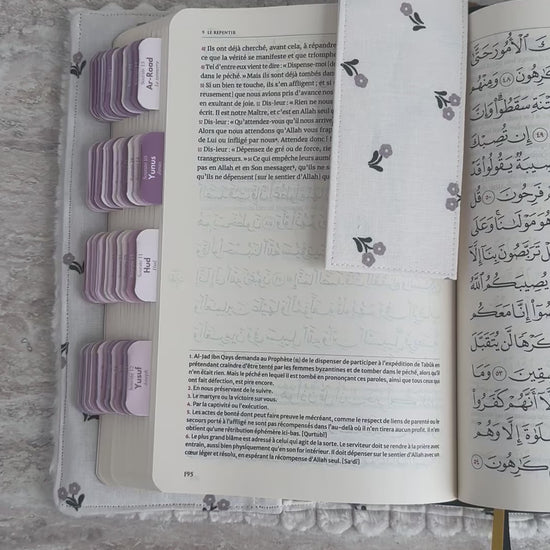 9 LE REPENTIR
48 Ils ont déjà cherché, avant cela, à répandre
ce que la vérité se manifeste et que triomphe
49 Tel d'entre eux vient te dire : « Dispense-moi
dans le péché. » Mais ils sont déjà tombés dans
50 Si un bien te touche, ils s'en affligent ; et si
reusement] que nous avions pris d'avance
en exultant de joie. 51 Dis-leur : « Rien ne nous
écrit. Il est notre Maître, et c'est en Allah seul
52 Dis-leur : « Qu'attendez-vous qu'il nous arrive,
Alors que nous attendons qu'Allah vous frappe
de Lui ou infligé par nous⁴. Attendez donc !
53 Dis-leur : « Dépensez de gré ou de force, rien
transgresseurs. » 54 Ce qui empêche leurs aumônes
pas en Allah et en Son messager⁵, qu'ils ne
qu'ils ne dépensent [sur le sentier d'Allah]
1. Al-Jad ibn Qays demanda au Prophète (ﷺ) de le dispenser de participer à l'expédition de Tabûk en
prétendant craindre d'être tenté par les femmes byzantines et de tomber dans le péché, alors qu'il
n'en était rien. Mais le péché en lequel il est tombé en prononçant ces paroles, ainsi que tous ceux qui
ont fait défection, est pire encore.
2. En nous préservant de le suivre.
3. Le martyre ou la victoire sur vous.
4. Par la captivité ou l'exécution.
5. Les actes de bonté dont peut faire preuve le mécréant, comme le respect de liens de parenté ou le
secours porté à l'affligé ne sont pas récompensés dans l'au-delà où il n'en tirera aucun profit. Il n'en
obtient qu'une rétribution éphémère ici-bas. (Qurtubî)
6. Le plus grand blâme est adressé à celui qui agit de la sorte. Le serviteur doit se rendre à la prière avec
entrain, aussi bien physiquement qu'en son for intérieur. Il doit dépenser sur le sentier d'Allah avec un
cœur léger et résolu, en espérant la récompense d'Allah seul. (Sa'dî)
195
Sourate 13
Ar-Raad
Le tonnerre
Sourate 10
Yunus
Jonas
Sourate 11
Hud
Hud
Sourate 12
Yusuf
Joseph
لَكَ ٱلْأُمُورَ حَتَّىٰ
كَٰرِهُونَ ٤٨ وَمِنْهُم
سَقَطُوا۟ وَإِنَّ
٤٩ إِن تُصِبْكَ
مُصِيبَةٌ يَقُولُوا۟ قَدْ
فَرِحُونَ ٥٠ قُل
هُوَ مَوْلَىٰنَا وَعَلَى
هَلْ تَرَبَّصُونَ بِنَآ إِلَّآ
يُصِيبَكُمُ ٱللَّهُ
إِنَّا مَعَكُم
كَرْهًا لَّن يُتَقَبَّلَ
٥٣ وَمَا
أَنَّهُمْ كَفَرُوا۟
ٱلصَّلَوٰةَ إِلَّا وَهُمْ
كَٰرِهُونَ ٥٤